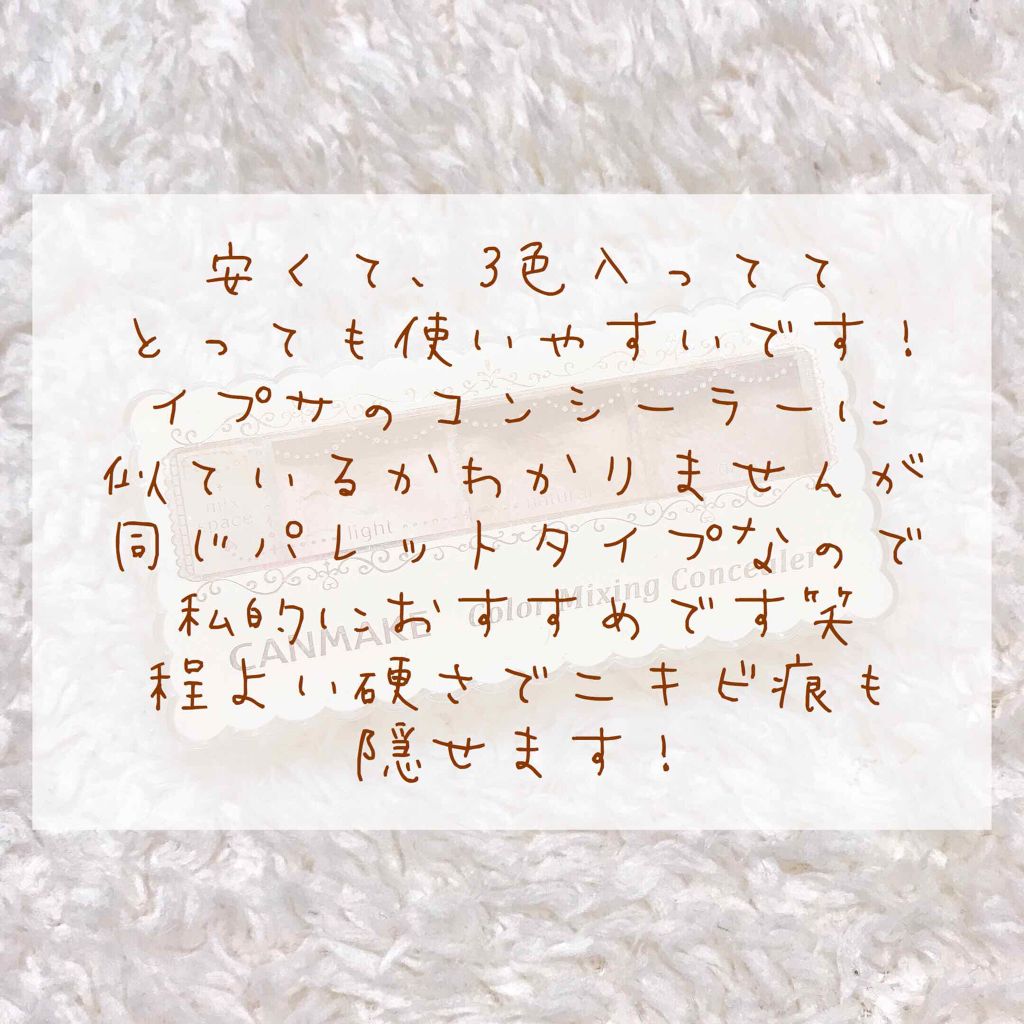 安くて、3色入ってて
とっても使いやすいです!
イプサのコンシーラーに
似ているかわかりませんが
同じパレットタイプなので
私的におすすめです笑
程よい硬さでニキビ痕も
隠せます!
mix
space
light
natural
CANMAKE
Color Mixing Concealer